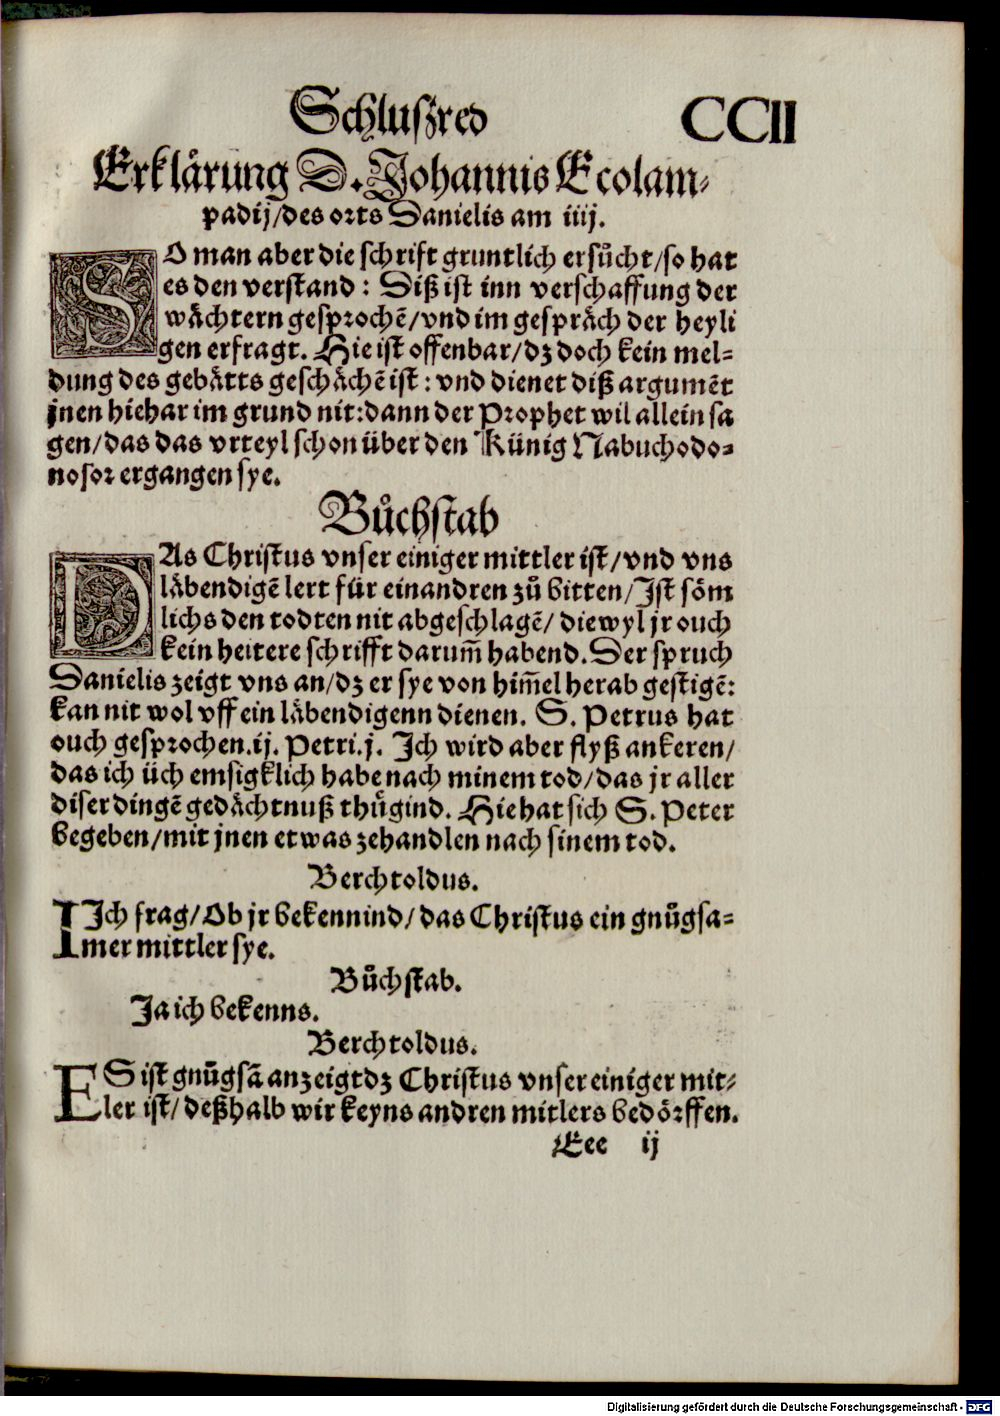 Schlußred CCII
Erklårung D. Johannis Ecolam-
padij/des orts Danielis am iiij.
SO man aber die schrift gruntlich ersůcht/so hat
es den verstand: Diß ist inn verschaffung der
wåchtern gesprochē/vnd im gespråch der heyli
gen erfragt. Hie ist offenbar/dz doch kein mel=
dung des gebåtts geschåchē ist: vnd dienet diß argumēt
jnen hiehar im grund nit: dann der Prophet wil allein sa
gen/das das vrteyl schon über den Künig Nabuchodo=
nosor ergangen sye.
Bůchstab
DAs Christus vnser einiger mittler ist/vnd vns
låbendigē lert für einandren zů bitten/Ist sőm
lichs den todten nit abgeschlagē/ diewyl jr ouch
kein heitere schrifft darum̄ habend. Der spruch
Danielis zeigt vns an/dz er sye von him̄el herab gestigē:
kan nit wol vff ein låbendigenn dienen. S. Petrus hat
ouch gesprochen.ij. Petri.j. Ich wird aber flyß ankeren/
das ich üch emsigklich habe nach minem tod/das jr aller
diser dingē gedåchtnuß thůgind. Hie hat sich S. Peter
begeben/mit jnen etwas zehandlen nach sinem tod.
Berchtoldus.
IIch frag/Ob jr bekennind/das Christus ein gnůgsa=
mer mittler sye.
Bůchstab.
Ja ich bekenns.
Berchtoldus.
ES ist gnůgsā anzeigt dz Christus vnser einiger mit-
ler ist/deßhalb wir keyns andren mitlers bedőrffen.
Eee ij
Digitalisierung gefördert durch die Deutsche Forschungsgemeinschaft - DFG